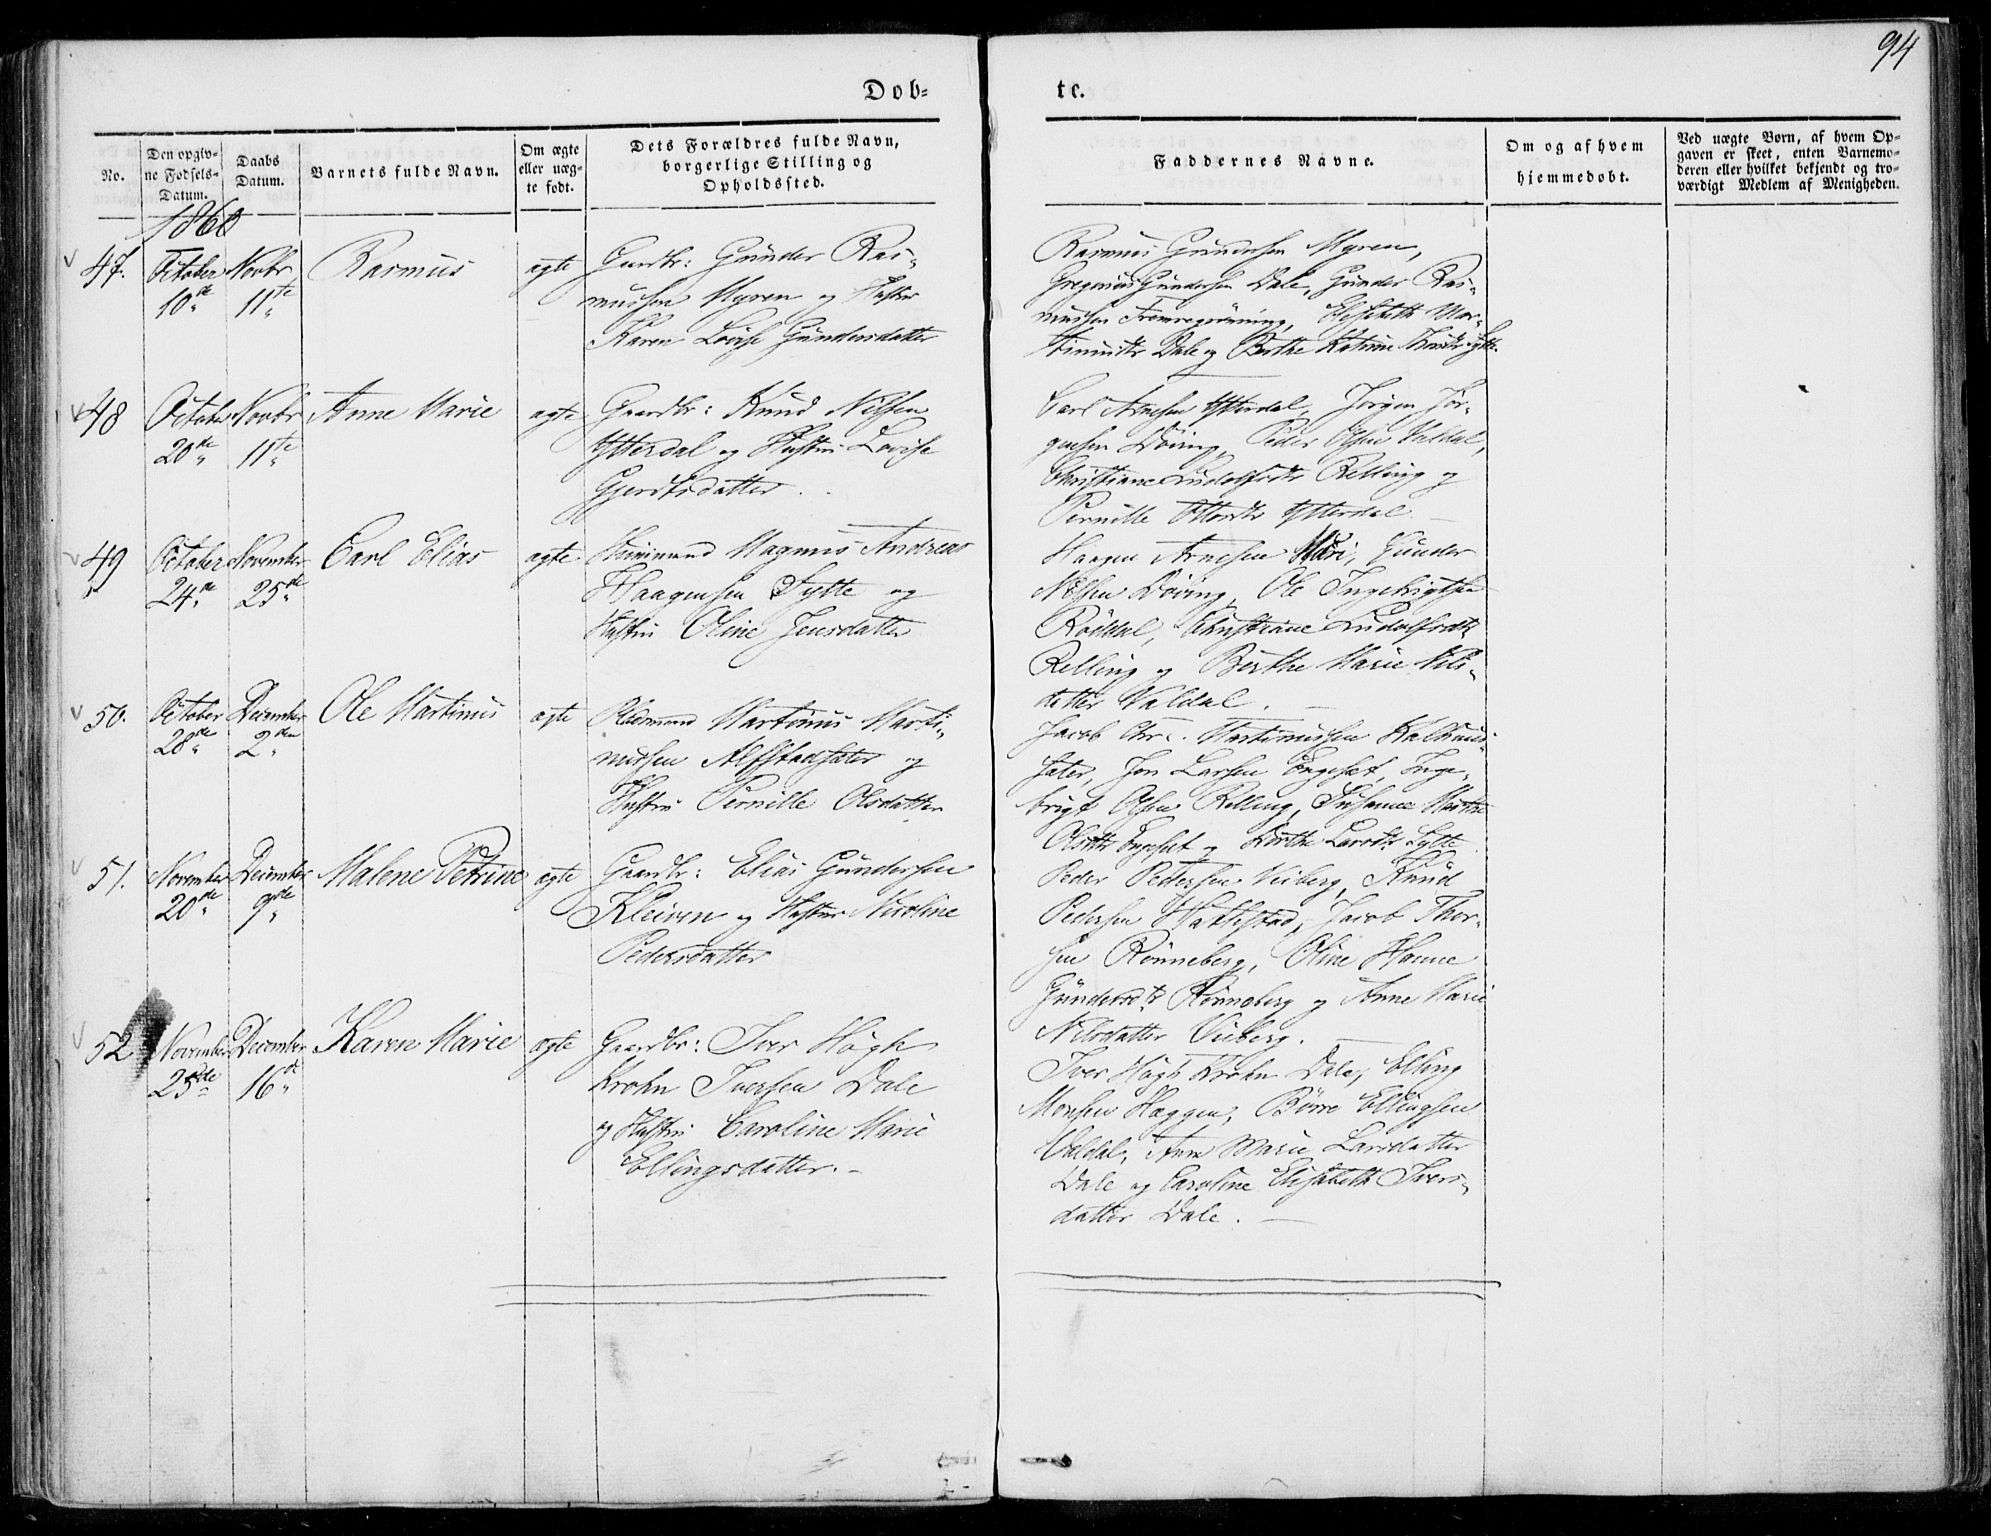 94
Døb-
te.
No.
Den opgiv-
ne Fødsels-
Datum.
Daabs
Datum.
Barnets fulde Navn.
Om ægte
eller uæg-
te født.
Dets Forældres fulde Navn,
borgerlige Stilling og
Opholdssted.
Faddernes Navne.
Om og af hvem
hjemmedøbt.
Ved uægte Børn, af hvem Op-
gaven er skeet, enten Barnemo-
deren eller hvilket bekjendt og tro-
værdigt Medlem af Menigheden.
1860
47. October 10de Novbr 11te Rasmus ægte
Gaardbr: Gunder Ras-
mussen Myren og Hustru
Karen Lovise Gundersdatter
Rasmus Gundersen Myren,
Gregorius Gundersen Dale, Gunder Ras-
mussen Fremregrønning, Elisabeth Mar-
Dale og Berthe Katrine Sytte.
48 October 20de Novbr 11te Anne Marie ægte
Gaardbr: Knud Nilsen
Ytterdal og Hustru Lovise
Gjerdtsdatter.
Carl Arnesen Ytterdal, Jørgen Jør-
gensen Døving, Peder Olsen Valdal,
Christiane Ludolfsdtr Relling og
Pernille Ytterdal.
49 October 24de November 25de Carl Elias ægte
Magnus Andreas
Haagensen Sytte og
Hustru Oline Jensdatter
Haagen Arnesen Muri, Gunder
Nilsen Døving, Ole Ingebrigtsen
Røddal, Christiane Ludolfsdtr
Relling og Berthe Marie Nils-
datter Valdal.
50. October 28de December 2den Ole Martinus ægte
Martinus Marti-
nussen Alfstadsæter og
Hustru Pernille Olsdatter
Jacob Chr. Martinussen
sæter, Jon Larsen Engeset, Inge-
brigt Olsen Relling, Susanne Marthe
Olsdtr Engeset og Dorthe Larsdtr Sytte
51. November 20de December 9de Malene Petrine ægte
Gaardbr: Elias Gundersen
Kleiven og Hustru Nicoline
Pedersdatter
Peder Pedersen Viiberg, Knud
Pedersen Hattestad, Jacob Thor-
sen Rønneberg, Oline Hanne
Gundersdtr Rønneberg og Anne Marie
Nilsdatter Viiberg.
52 November 25de December 16de Karen Marie ægte
Gaardbr: Iver Høgh
Krohn Iversen Dale
og Hustru Caroline Marie
Ellingsdatter.
Iver Høgh Krohn Dale, Elling
Monsen Hoggen, Børre Ellingsen
Valdal, Anne Marie Larsdatter
Dale og Caroline Elisabeth Ivers-
datter Dale.